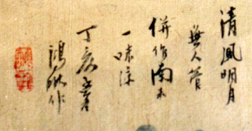 清風明月
無人管
併作南來
一味涼
丁亥
作